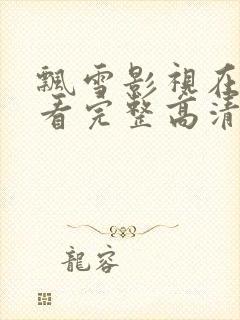 飄雪影視在
看完整高清
龍容